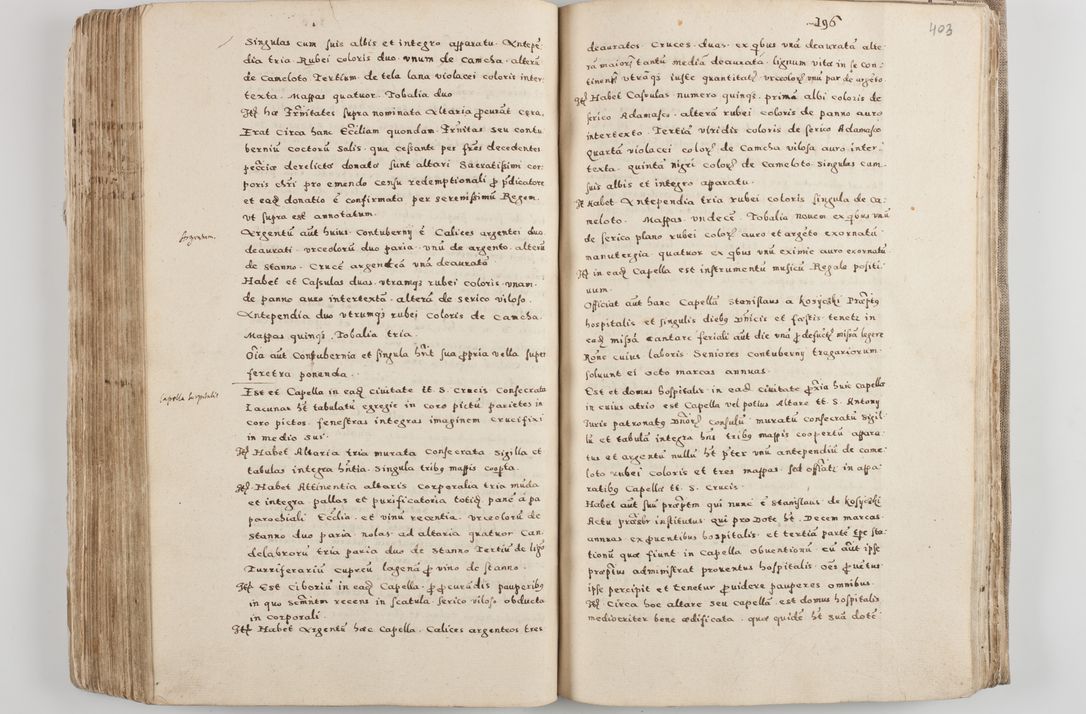 Singulas cum suis albis et integro apparatu. Antepē-
dia tria Rubei coloris duo. vnum de camcha. alterū
de Cameloto Tertium. de tela lana violacei coloris inter-
texta. Mappas quatuor. Tobalia duo
Itē hæ Frnitates supra nominata Altaria ꝓcurāt cera.
Erat Circa hanc Ecċliam quondam Frnitas seu contu
berniū coctorū Salis. qua cessante per frēs decedentes
derelicto donato sunt altari Sacratissimi cor-
poris chri pro emendo censu redemptionali ꝑ pdicatore
et eadē donatio ē confirmata per serenissimū Regem.
vt supra est annotatum.
Argentum.
Argentū aūt huius contubernij ē Calices argentei duo
deaurati. vrceolorū duo paria. vnū de argento. alterū
de stanno. Crucē argenteā vnā deauratā
Habet et Casulas duas. vtramqȝ rubei coloris. vnam.
de panno auro intertextā. alterā de serico viloso.
Antependia duo vtrumqȝ rubei coloris de Camcha.
Mappas quinqȝ. Tobalia tria.
Oīa aūt Contubernia et singula hn̄t sua ꝓpria vella super
feretra ponenda.
Capella hospitalis
Est et Capella in eadē ciuitate tt. S. Crucis consecrata
Lacunar hēt tabulatū. egregie in coro pictū parietes in
coro pictos. fenestras integras imaginem crucifixi
in medio sui.
Itē Habet Altaria tria murata Consecrata Sigilla et
tabulas integra hn̄tia. singula tribȝ mappis coopta.
Itē Habet Attinentia altaris corporalia tria mūda
et integra pallas et purificatoria totidē. panē á pa
parochiali Ecċlia. et vinū recentia. vrceolorū de
stanno duo paria. nolas. ad altaria quatuor Can-
delabrorū tria paria duo de stanno Tertiū de ligo
Turriferariū cupreū lagenā ꝓ vino de stanno.
Itē Est Ciboriū in eadē Capella. ꝓ ꝓcurādis pauperibȝ
in quo Semn̄tm recens in scatula serico viloso obducta
in corporali.
Itē Habet Argentū hæc Capella. Calices argenteos tres
196
403
deauratos. Cruces duas. ex qbus vnā deauratā alte-
rā maiorē tantū mediā deauratā. lignum vitæ in se con-
tinentē vtrāqȝ iuste quantitatē. vrceolorē vnū par de argēto
Itē Habet Casulas numero quinqȝ. primā albi coloris de
serico Adamasco. alterā rubei coloris de panno auro
intertexto. Tertiā viridis coloris de serico Adamasco
quartā violacei colorē de Camcha vilosa auro inter-
texta. quintā nigri colorē de Cameloto. singulas cum
suis albis et integro apparatu.
Itē Habet Antependia tria rubei coloris singula de Ca-
meloto. Mappas vndecē. Tobalia nouem ex qbus vnū
de serico plano rubei colorē auro et argēto exornatā
manutergia quatuor ex qbus vnū eximie auro exornatū
Itē in eadē Capella est instrumentū musicū Regale positi-
uum.
Officiat aūt hanc Capellā Stanislaus a Kosyczki Præptȝ
hospitalis et singulis diebȝ Dnicis et fæstis tenetȝ in
eadē missā cantare feriali aūt die vnā ꝓ defūctȝ missā legere
Rōne cuius laboris Seniores contubernij tragariorum.
soluunt ei octo marcas annuas.
Est et domus hospitalis in eadē Ciuitate ꝓxia huic capellæ
in cuius atrio est Capella vel potius Altare tt. S. Antony
Iuris patronatȝ Dnorē consulū muratū consecratū Sigil-
lū et tabulā integra hn̄s tribȝ mappis coopertū appara-
tus et argentū nullū hēt pter vnū antependiū de came-
loto rubei coloris et tres mappas. sed officiatȝ in appa-
ratibȝ Capellæ tt. S. Crucis.
Habet aūt suū præptm qui nunc ē Stanislaus de Kosyczki
Actu prasbr institutus qui pro Dote hēt. Decem marcas
annuas ex ꝓuentibus hospitalis. et tertiā partē
tionū quæ fiunt in Capella obuentionū cū aūt ipse
præptus administrat prouentus hospitalis oēs ꝓuētus
ipse percipit et tenetur ꝓuidere pauperes omnibus.
Itē Circa hoc altare seu capellā. est domus hospitalis
mediocriter bene ædificata. quæ quidē hēt suā dotē